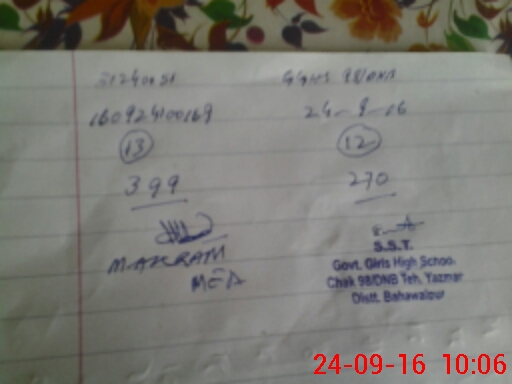 31240051
160924100169
13
399
M.AKRAM
MEA
GGHS 98/DNB
24-9-16
12
270
S.S.T.
Govt. Girls High School
Chak 98/DNB Teh. Yazman
Distt. Bahawalpur
24-09-16 10:06